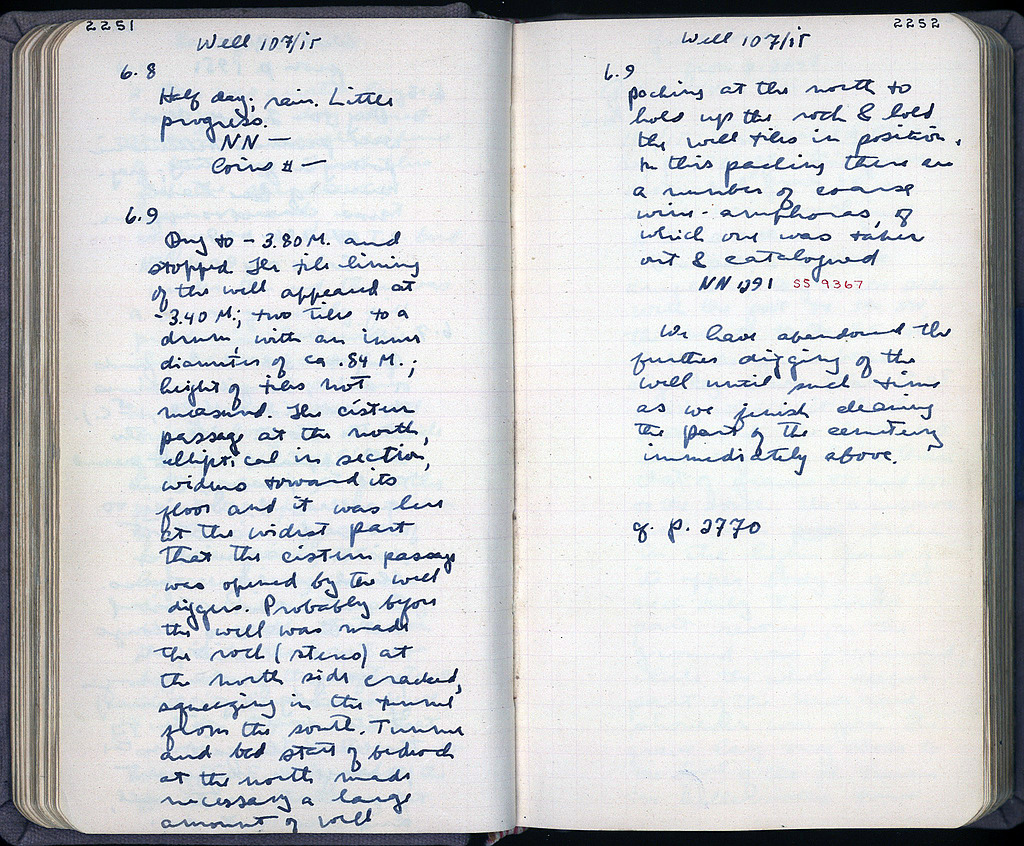 2251
Well 107/ΙΕ
6.8
Half day; rain. Little
progress.
NN —
Coins # —
6.9
Dug to - 3.80 M. and
stopped. The tile lining
of the well appeared at
- 3.40 M.; two tiles to a
drum, with an inner
diameter of ca .84 M.;
height of tiles not
measured. The cistern
passage at the north,
elliptical in section,
widens toward its
floor and it was here
at the widest part
that the cistern passage
was opened by the well
diggers. Probably before
the well was made
the rock (stereo) at
the north side cracked,
squeezing in the tunnel
from the south. Tunnel
and bad state of bedrock
at the north made
necessary a large
amount of well
2252
Well 107/ΙΕ
6.9
packing at the north to
hold up the rock & hold
the well tiles in position.
In this packing there are
a number of coarse
wine-amphoras, of
which one was taken
out & catalogued
NN 1291 SS 9367
We have abandoned the
further digging of the
well until such time
as we finish clearing
the part of the cemetery
immediately above.
cf. p. 2770